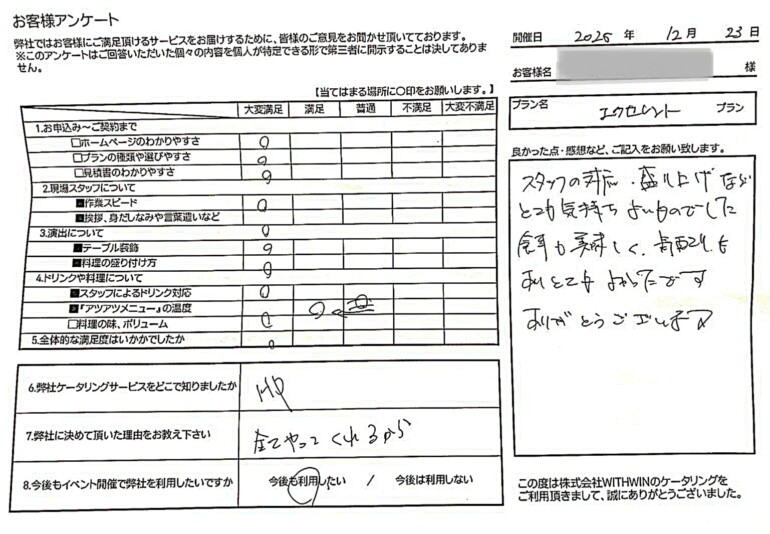 お客様アンケート
弊社ではお客様にご満足頂けるサービスをお届けするために、皆様のご意見をお聞かせ頂いております。
※このアンケートはご回答いただいた個々の内容を個人が特定できる形で第三者に開示することは決してありま
せん。
開催日 2025 年 12 月 23 日
お客様名 様
プラン名 エクセレント プラン
【当てはまる場所に〇印をお願いします。】
大変満足 満足 普通 不満足 大変不満足
1.お申込み～ご契約まで
□ホームページのわかりやすさ
□プランの種類や選びやすさ
□見積書のわかりやすさ
2.現場スタッフについて
■作業スピード
■挨拶、身だしなみや言葉遣いなど
3.演出について
■テーブル装飾
■料理の盛り付け方
4.ドリンクや料理について
■スタッフによるドリンク対応
■『アツアツメニュー』の温度
□料理の味、ボリューム
5.全体的な満足度はいかがでしたか
6.弊社ケータリングサービスをどこで知りましたか
HP
7.弊社に決めて頂いた理由をお教え下さい
全てやってくれるから
8.今後もイベント開催で弊社を利用したいですか
今後も利用したい / 今後は利用しない
良かった点・感想など、ご記入をお願い致します。
スタッフの対応・盛り上げなど
とても気持ちよいものでした
食事も美味しく、
よかったです
ありがとうございます
この度は株式会社WITHWINのケータリングを
ご利用頂きまして、誠にありがとうございました。